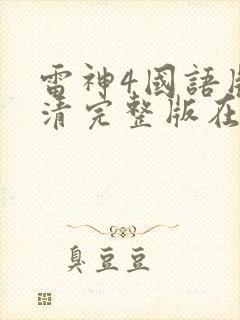 雷神4国語
清完整版在
臭豆豆